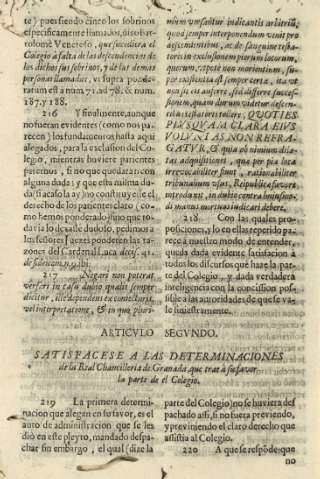 te) pues siendo cinco los sobrinos
especificamente llamados, dixo bartolomè
Colegio à falta de los descendientes de
los dichos sus sobrinos, y de las demas
personas llamadas, vi supra ponderatum
est à num. 71. ad 78. & num.
187. y 188.
216 Y finalmente, aunque
no fueran evidentes (como nos parecen)
los fundamentos hasta aqui
alegados, para la exclusion del Colegio,
mientras huviere parientes
paternos, si no que quedaran con
alguna duda; y que esta misma duda
(si acaso la ay) no constituye el
derecho de los parientes claro; como
hemos ponderado, sino que todavia
lo dexasse dudoso, pedimos à
los señores Juezes ponderen las razones
del Cardenal
217 Negari non poterat
versari in casu dubio qualis semper
dicitur, ille dependens ex coniecturis,
vel interpretatione, & in quo
mium versatur iudicantis arbitriũ,
quod semper interponendum venit pro
agnatitiis, ac de sanguine testatoris
in exclusionem piorum locorum,
quorum, rapere non morientium, super
existentia est semper certa, ita ut nunquam
eis auferre, sed differre successionem,
quam durum videtur descendentibus
testatoris tollere, QUOTIES
PLUSQUAM CLARA EIUS
VOLUNTAS NON REFRAGATUR,
& quia ob nimium dilatas
acquisitiones, quæ per pia loca
irrevocabiliter sunt, rationabiliter
tribunalium usus, Reipublicæ favore
introduxit, in dubio contra huiusmodi
vocatos mortuos iudicari debere.
218 Con las quales proposiciones,
y lo en ellas repetido parece
à nuestro modo de entender,
queda dada evidente satisfacion à
todos los discursos que haze la parte
del Colegio, y dada verdadera
inteligencia con la concission possible
à las autoridades de que se vale
siniestramente.
ARTICULO SEGVNDO.
SATISFACESE A LAS DETERMINACIONES
de la Real Chancilleria de Granada, que trae à su favor
la parte de el Colegio.
219 La primera determinacion
que alegan en su favor, es el
auto de administracion que se les
diò en este pleyto, mandado despachar
sin embargo, el qual (dize la
parte del Colegio) no se huviera despachado
assi, si no fuera previendo,
y previniendo el claro derecho que
assistia al Colegio.
220 A que se respõde, que
no